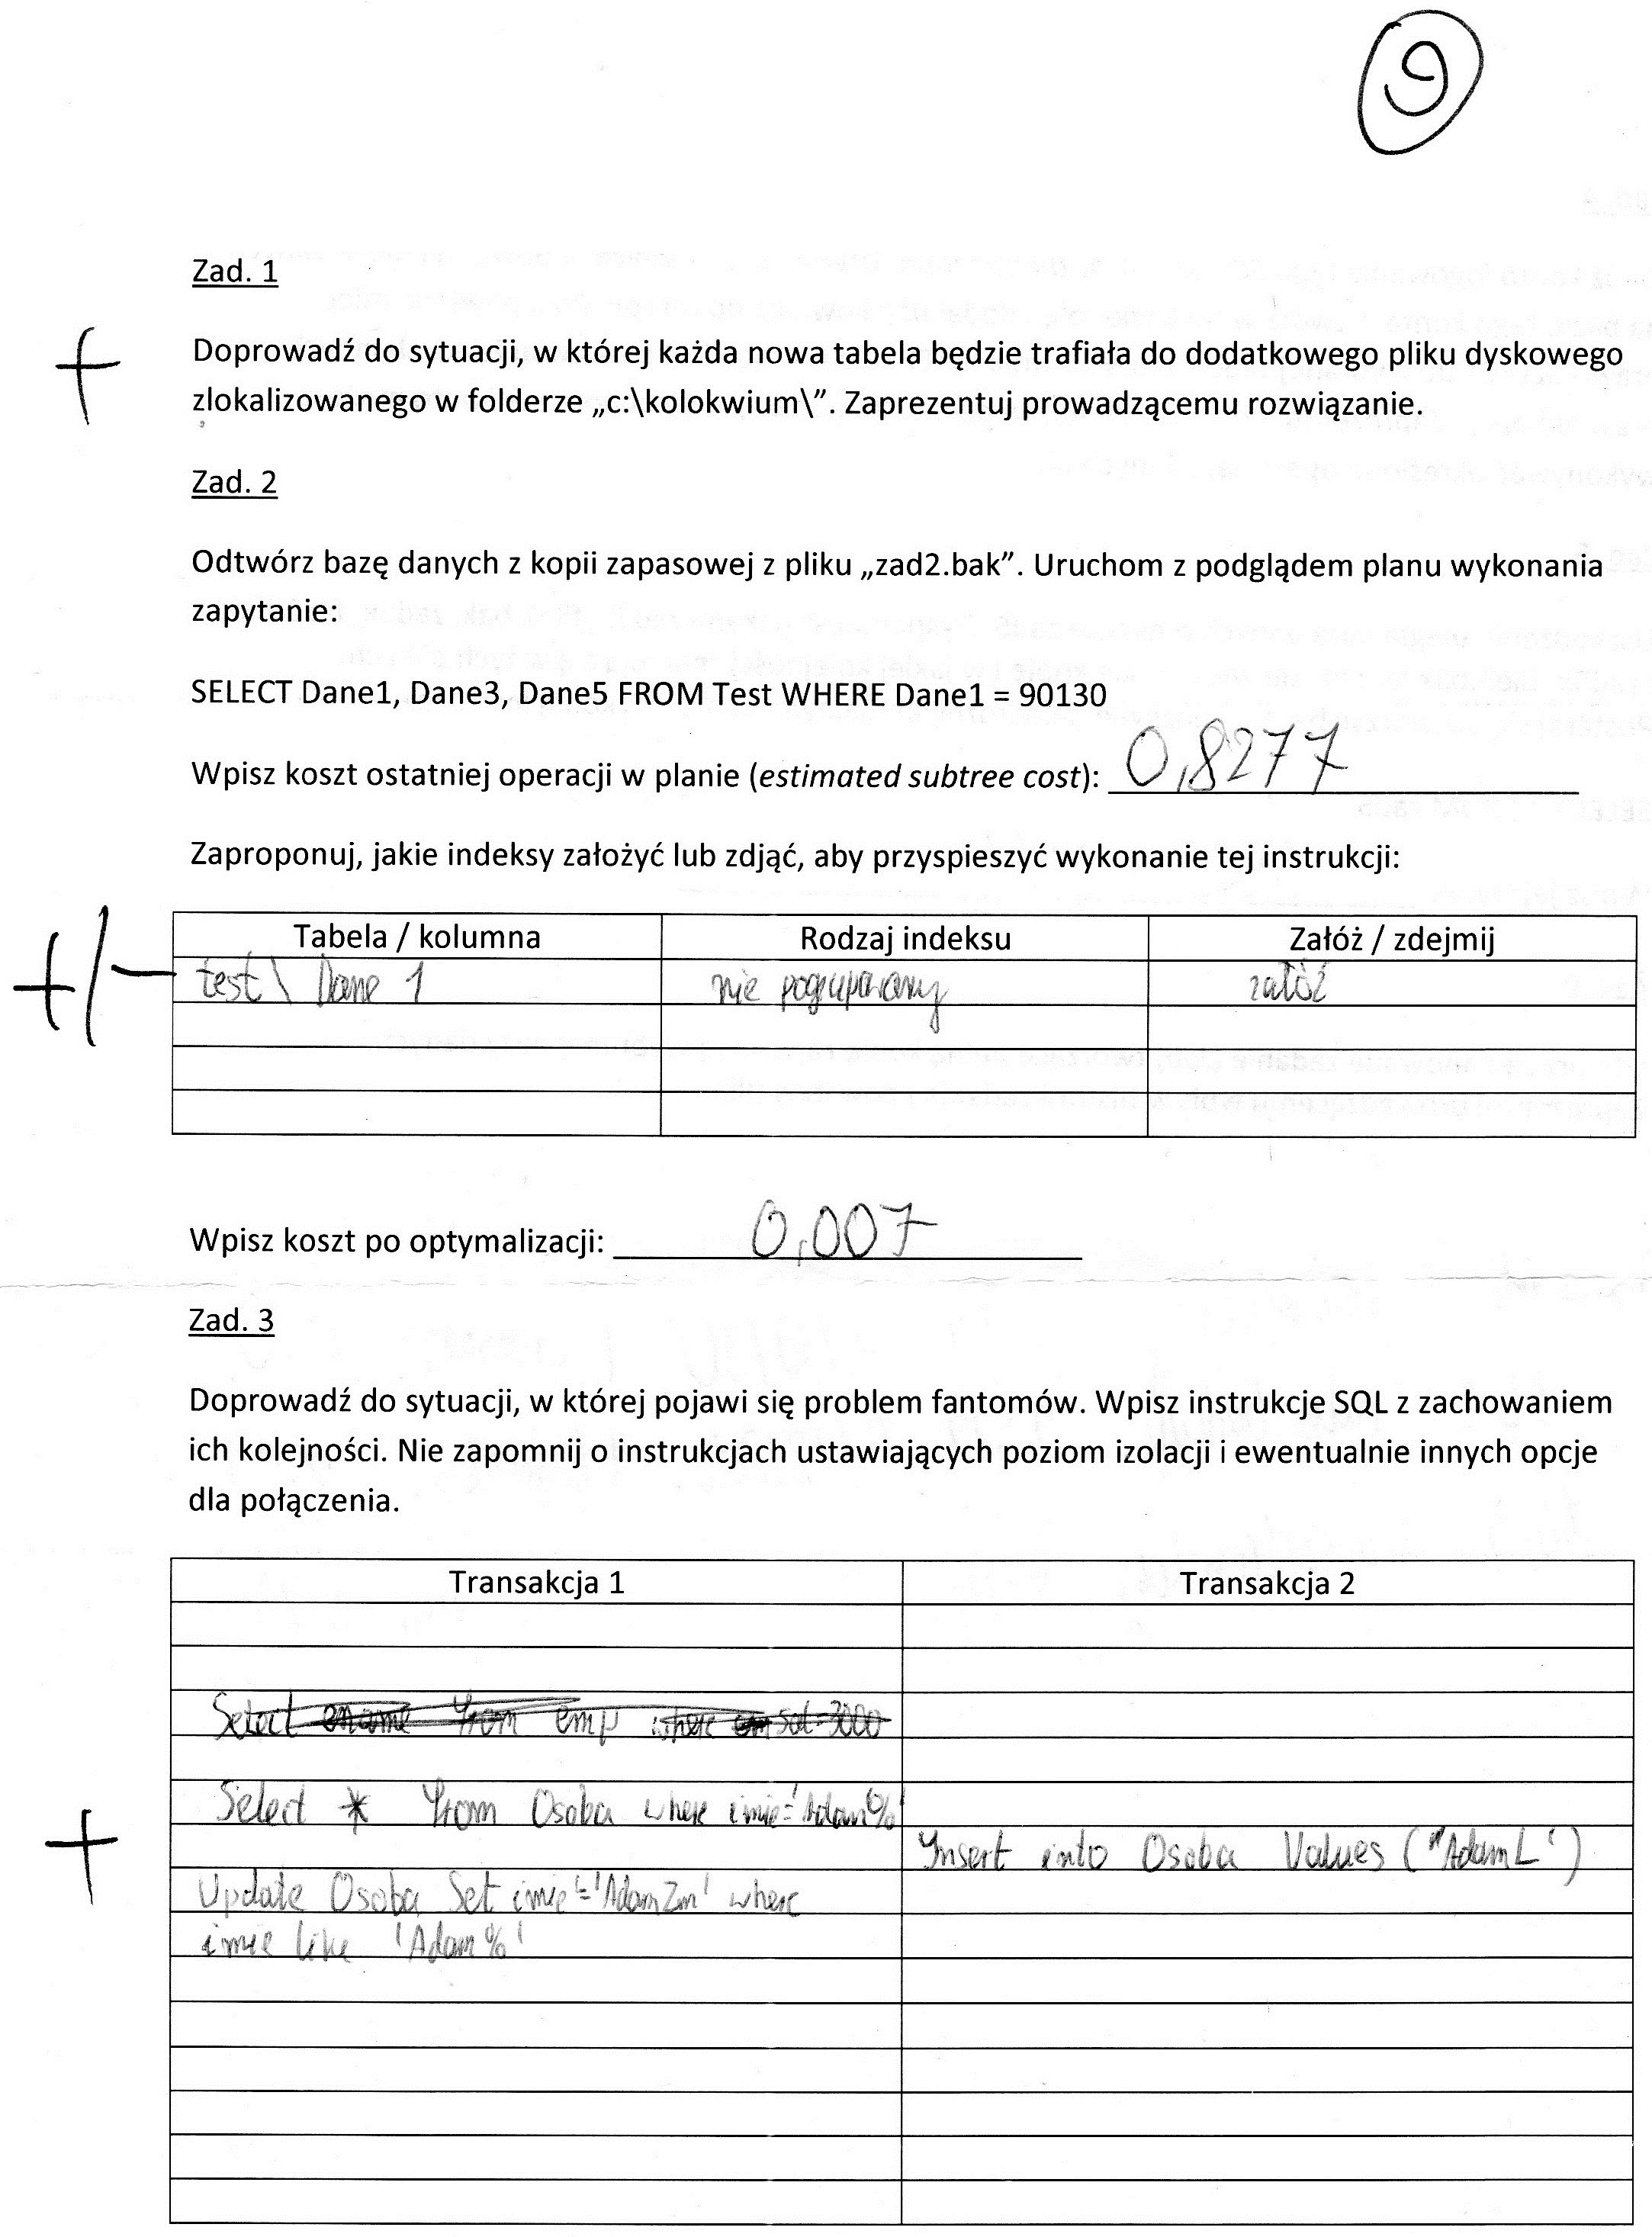 9
Zad. 1
+
Doprowadź do sytuacji, w której każda nowa tabela będzie trafiała do dodatkowego pliku dyskowego
zlokalizowanego w folderze „c:\kolokwium\”. Zaprezentuj prowadzącemu rozwiązanie.
Zad. 2
Odtwórz bazę danych z kopii zapasowej z pliku „zad2.bak”. Uruchom z podglądem planu wykonania
zapytanie:
SELECT Dane1, Dane3, Dane5 FROM Test WHERE Dane1 = 90130
Wpisz koszt ostatniej operacji w planie (estimated subtree cost): 0,8277
Zaproponuj, jakie indeksy założyć lub zdjąć, aby przyspieszyć wykonanie tej instrukcji:
Tabela / kolumna Rodzaj indeksu Załóż / zdejmij
+/- test \ Dane 1 nie pogrupowany załóż
Wpisz koszt po optymalizacji: 0,007
Zad. 3
Doprowadź do sytuacji, w której pojawi się problem fantomów. Wpisz instrukcje SQL z zachowaniem
ich kolejności. Nie zapomnij o instrukcjach ustawiających poziom izolacji i ewentualnie innych opcje
dla połączenia.
Transakcja 1 Transakcja 2
Select ename from emp where sal=3000
Select * from Osoba where imie='Adam%'
+ Insert into Osoba Values ("AdamL')
Update Osoba Set imie='AdamZm' where
imie like 'Adam%'